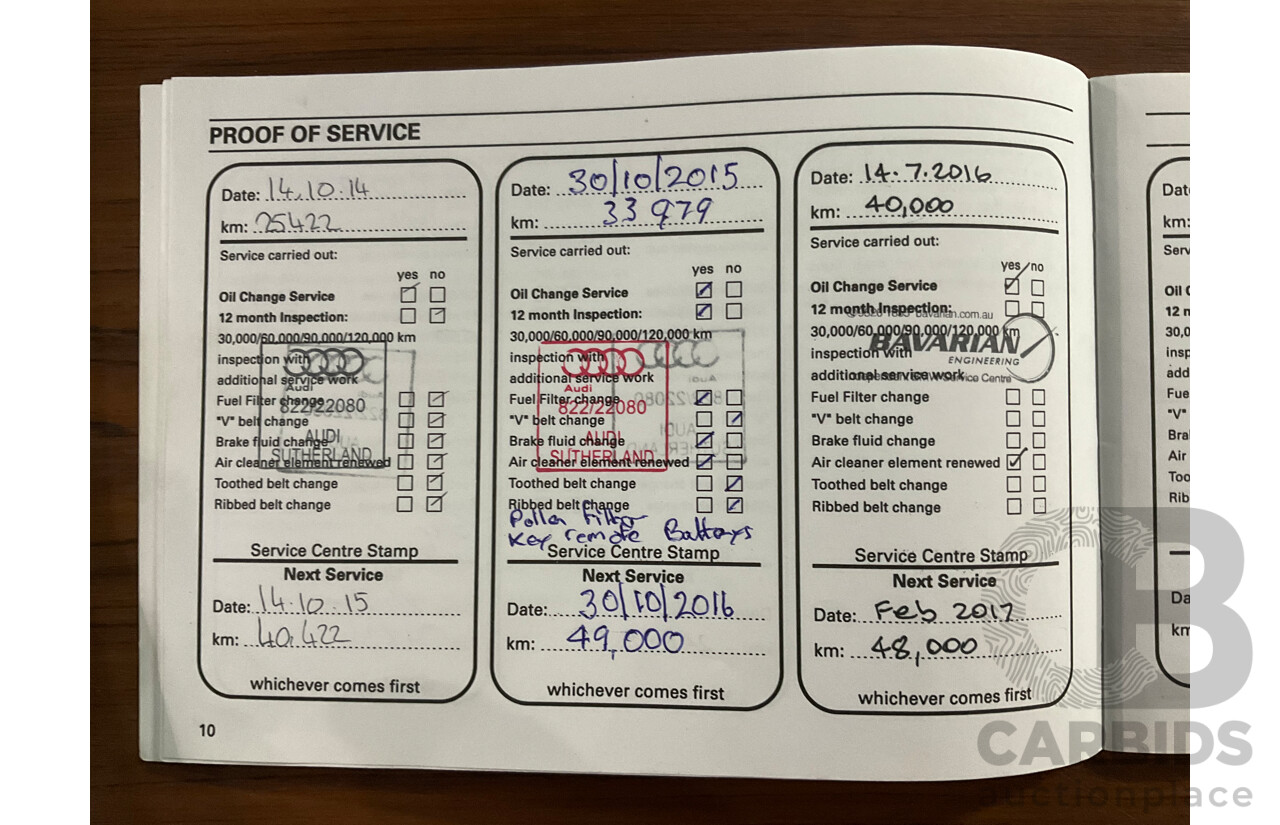 PROOF OF SERVICE
Date: 14.10.14
km: 25422
Service carried out:
yes no
Oil Change Service
12 month Inspection:
30,000/60,000/90,000/120,000 km
inspection with
additional service work
Fuel Filter change
"V" belt change
Brake fluid change
Air cleaner element renewed
Toothed belt change
Ribbed belt change
Audi
822/22080
AUDI
SUTHERLAND
Service Centre Stamp
Next Service
Date: 14.10.15
km: 40,422
whichever comes first
10
Date: 30/10/2015
km: 33979
Service carried out:
yes no
Oil Change Service
12 month Inspection:
30,000/60,000/90,000/120,000 km
inspection with
additional service work
Fuel Filter change
"V" belt change
Brake fluid change
Air cleaner element renewed
Toothed belt change
Ribbed belt change
Audi
822/22080
AUDI
SUTHERLAND
Pollen Filter
Key remote Batterys
Service Centre Stamp
Next Service
Date: 30/10/2016
km: 49,000
whichever comes first
Date: 14.7.2016
km: 40,000
Service carried out:
yes no
Oil Change Service
12 month Inspection:
30,000/60,000/90,000/120,000 km
inspection with
additional service work
Fuel Filter change
"V" belt change
Brake fluid change
Air cleaner element renewed
Toothed belt change
Ribbed belt change
bavarian.com.au
BAVARIAN
ENGINEERING
Service Centre
Service Centre Stamp
Next Service
Date: Feb 2017
km: 48,000
whichever comes first
km:
CARBIDS
auctionplace